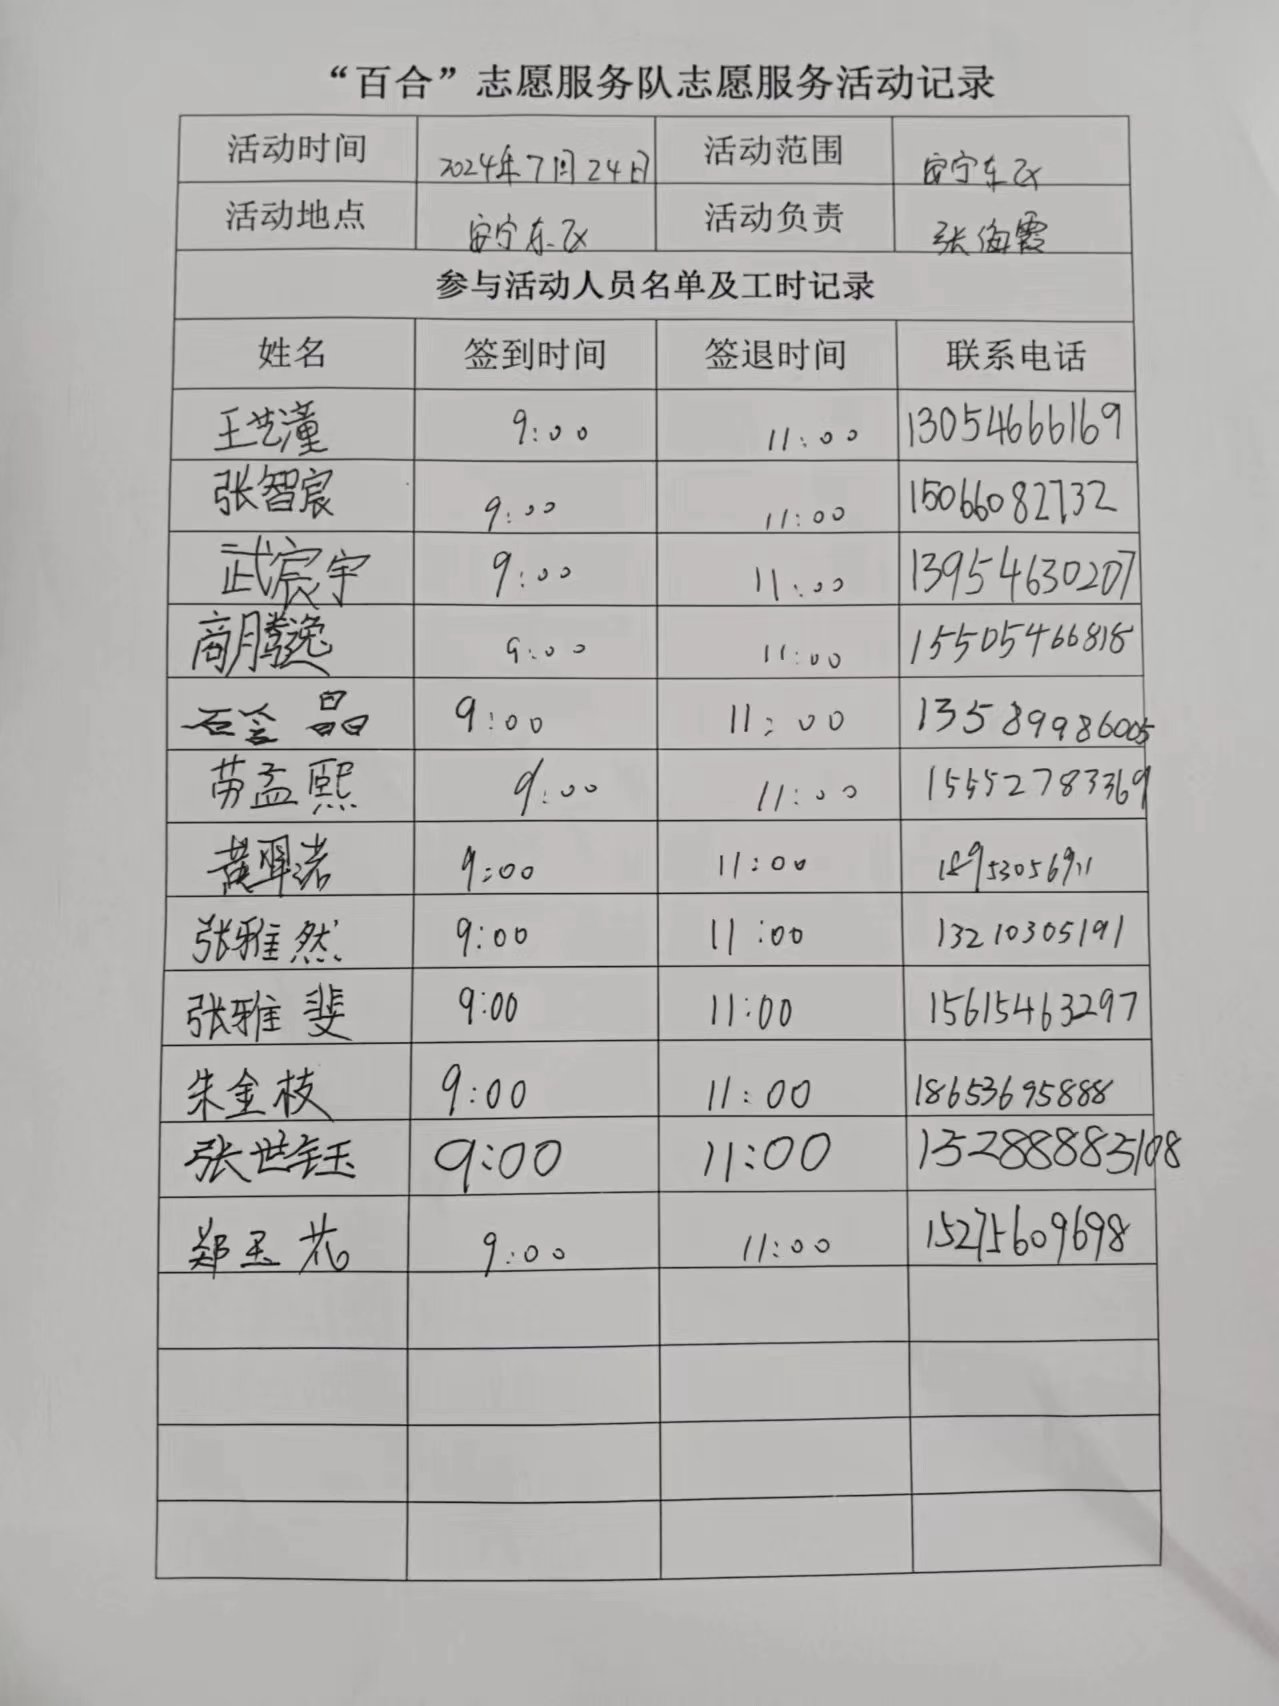 “百合”志愿服务队志愿服务活动记录
活动时间 2024年7月24日 活动范围 安宁东区
活动地点 安宁东区 活动负责 张海霞
参与活动人员名单及工时记录
姓名 签到时间 签退时间 联系电话
王艺潼 9:00 11:00 13054666169
张智宸 9:00 11:00 15066082732
武宸宇 9:00 11:00 13954630207
商腾逸 9:00 11:00 15505466818
晶 9:00 11:00 13589986005
苏孟熙 9:00 11:00 15552783369
黄翆诺 9:00 11:00 18953056911
张雅然 9:00 11:00 13210305191
张雅斐 9:00 11:00 15615463297
朱金枝 9:00 11:00 18653695888
张世钰 9:00 11:00 13288883108
郑玉花 9:00 11:00 15275609698